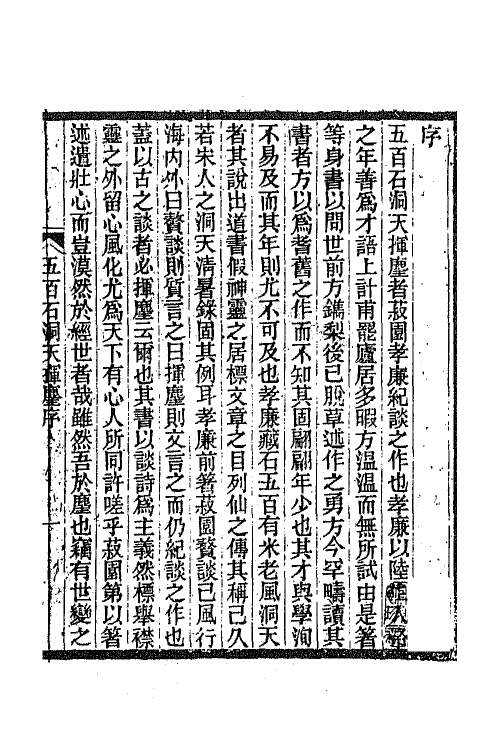 序
五百石洞天揮麈者菽園孝廉紀談之作也孝廉以陸
之年善爲才語上計甫罷廬居多暇方溫溫而無所試由是著
等身書以問世前方鐫梨後已脫草述作之勇方今罕疇讀其
書者方以爲耆舊之作而不知其固翩翩年少也其才與學洵
不易及而其年則尤不可及也孝廉藏石五百有米老風洞天
者其說出道書假神靈之居標文章之目列仙之傳其稱已久
若宋人之洞天清暑錄固其例耳孝廉前著菽園贅談已風行
海內外曰贅談則質言之曰揮麈則文言之而仍紀談之作也
蓋以古之談者必揮麈云爾也其書以談詩爲主義然標舉襟
靈之外留心風化尤爲天下有心人所同許嗟乎菽園第以著
述遣壯心而豈漠然於經世者哉雖然吾於麈也竊有世變之
五百石洞天揮麈序